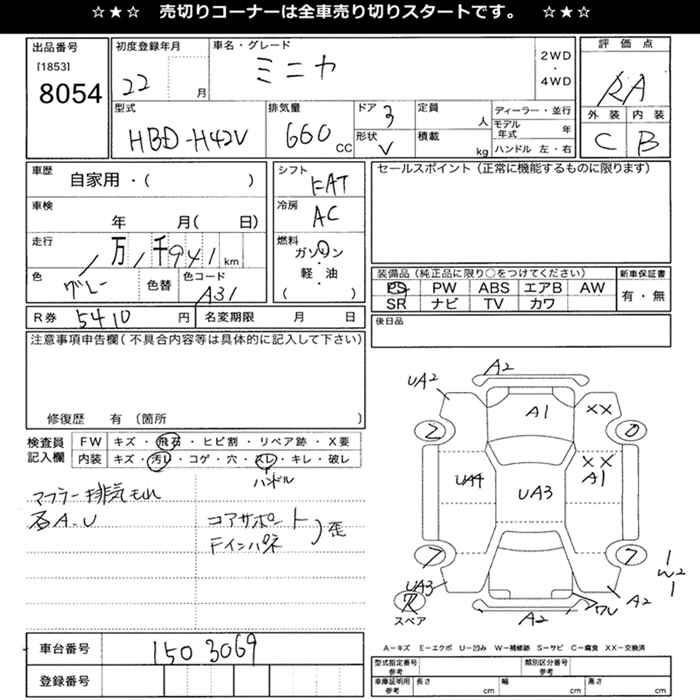 ☆★☆ 売切りコーナーは全車売り切りスタートです。 ☆★☆
出品番号
[1853]
8054
初度登録年月
22 月
車名・グレード
ミニカ
2WD
・
4WD
評価点
RA
外装 内装
C B
型式
HBD-H42V
排気量
660 CC
ドア 3
形状 V
定員 人
積載 kg
ディーラー・並行
モデル年式 年
ハンドル 左・右
車歴
自家用・( )
車検
年 月( 日)
走行
1万1千941 km
色
グレー
色替
色コード
A31
シフト
FAT
冷房
AC
燃料
ガソリン
・
軽・油
( )
セールスポイント(正常に機能するものに限ります)
装備品(純正品に限り○をつけてください)
PS PW ABS エアB AW
SR ナビ TV カワ
新車保証書
有・無
後日品
R券 5410 円
名変期限 月 日
注意事項申告欄(不具合内容等は具体的に記入して下さい)
修復歴 有 (箇所 )
検査員
記入欄
FW キズ・飛石・ヒビ割・リペア跡・X要
内装 キズ・汚レ・コゲ・穴・スレ・キレ・破レ
ハンドル
マフラー排気もれ
各A.U
コアサポート
Fインパネ
歪
A2
UA2
A1
XX
2
0
UA4
UA3
XX
A1
7
7
UA3
ワレ
A2
A2
1
W2
1
スペア
A−キズ E−エクボ U−凹み W−補修跡 S−サビ C−腐食 XX−交換済
車台番号
1503069
登録番号
型式指定番号
参考
類別区分番号
参考
車庫証明用
参考
長さ cm
幅 cm
高さ cm